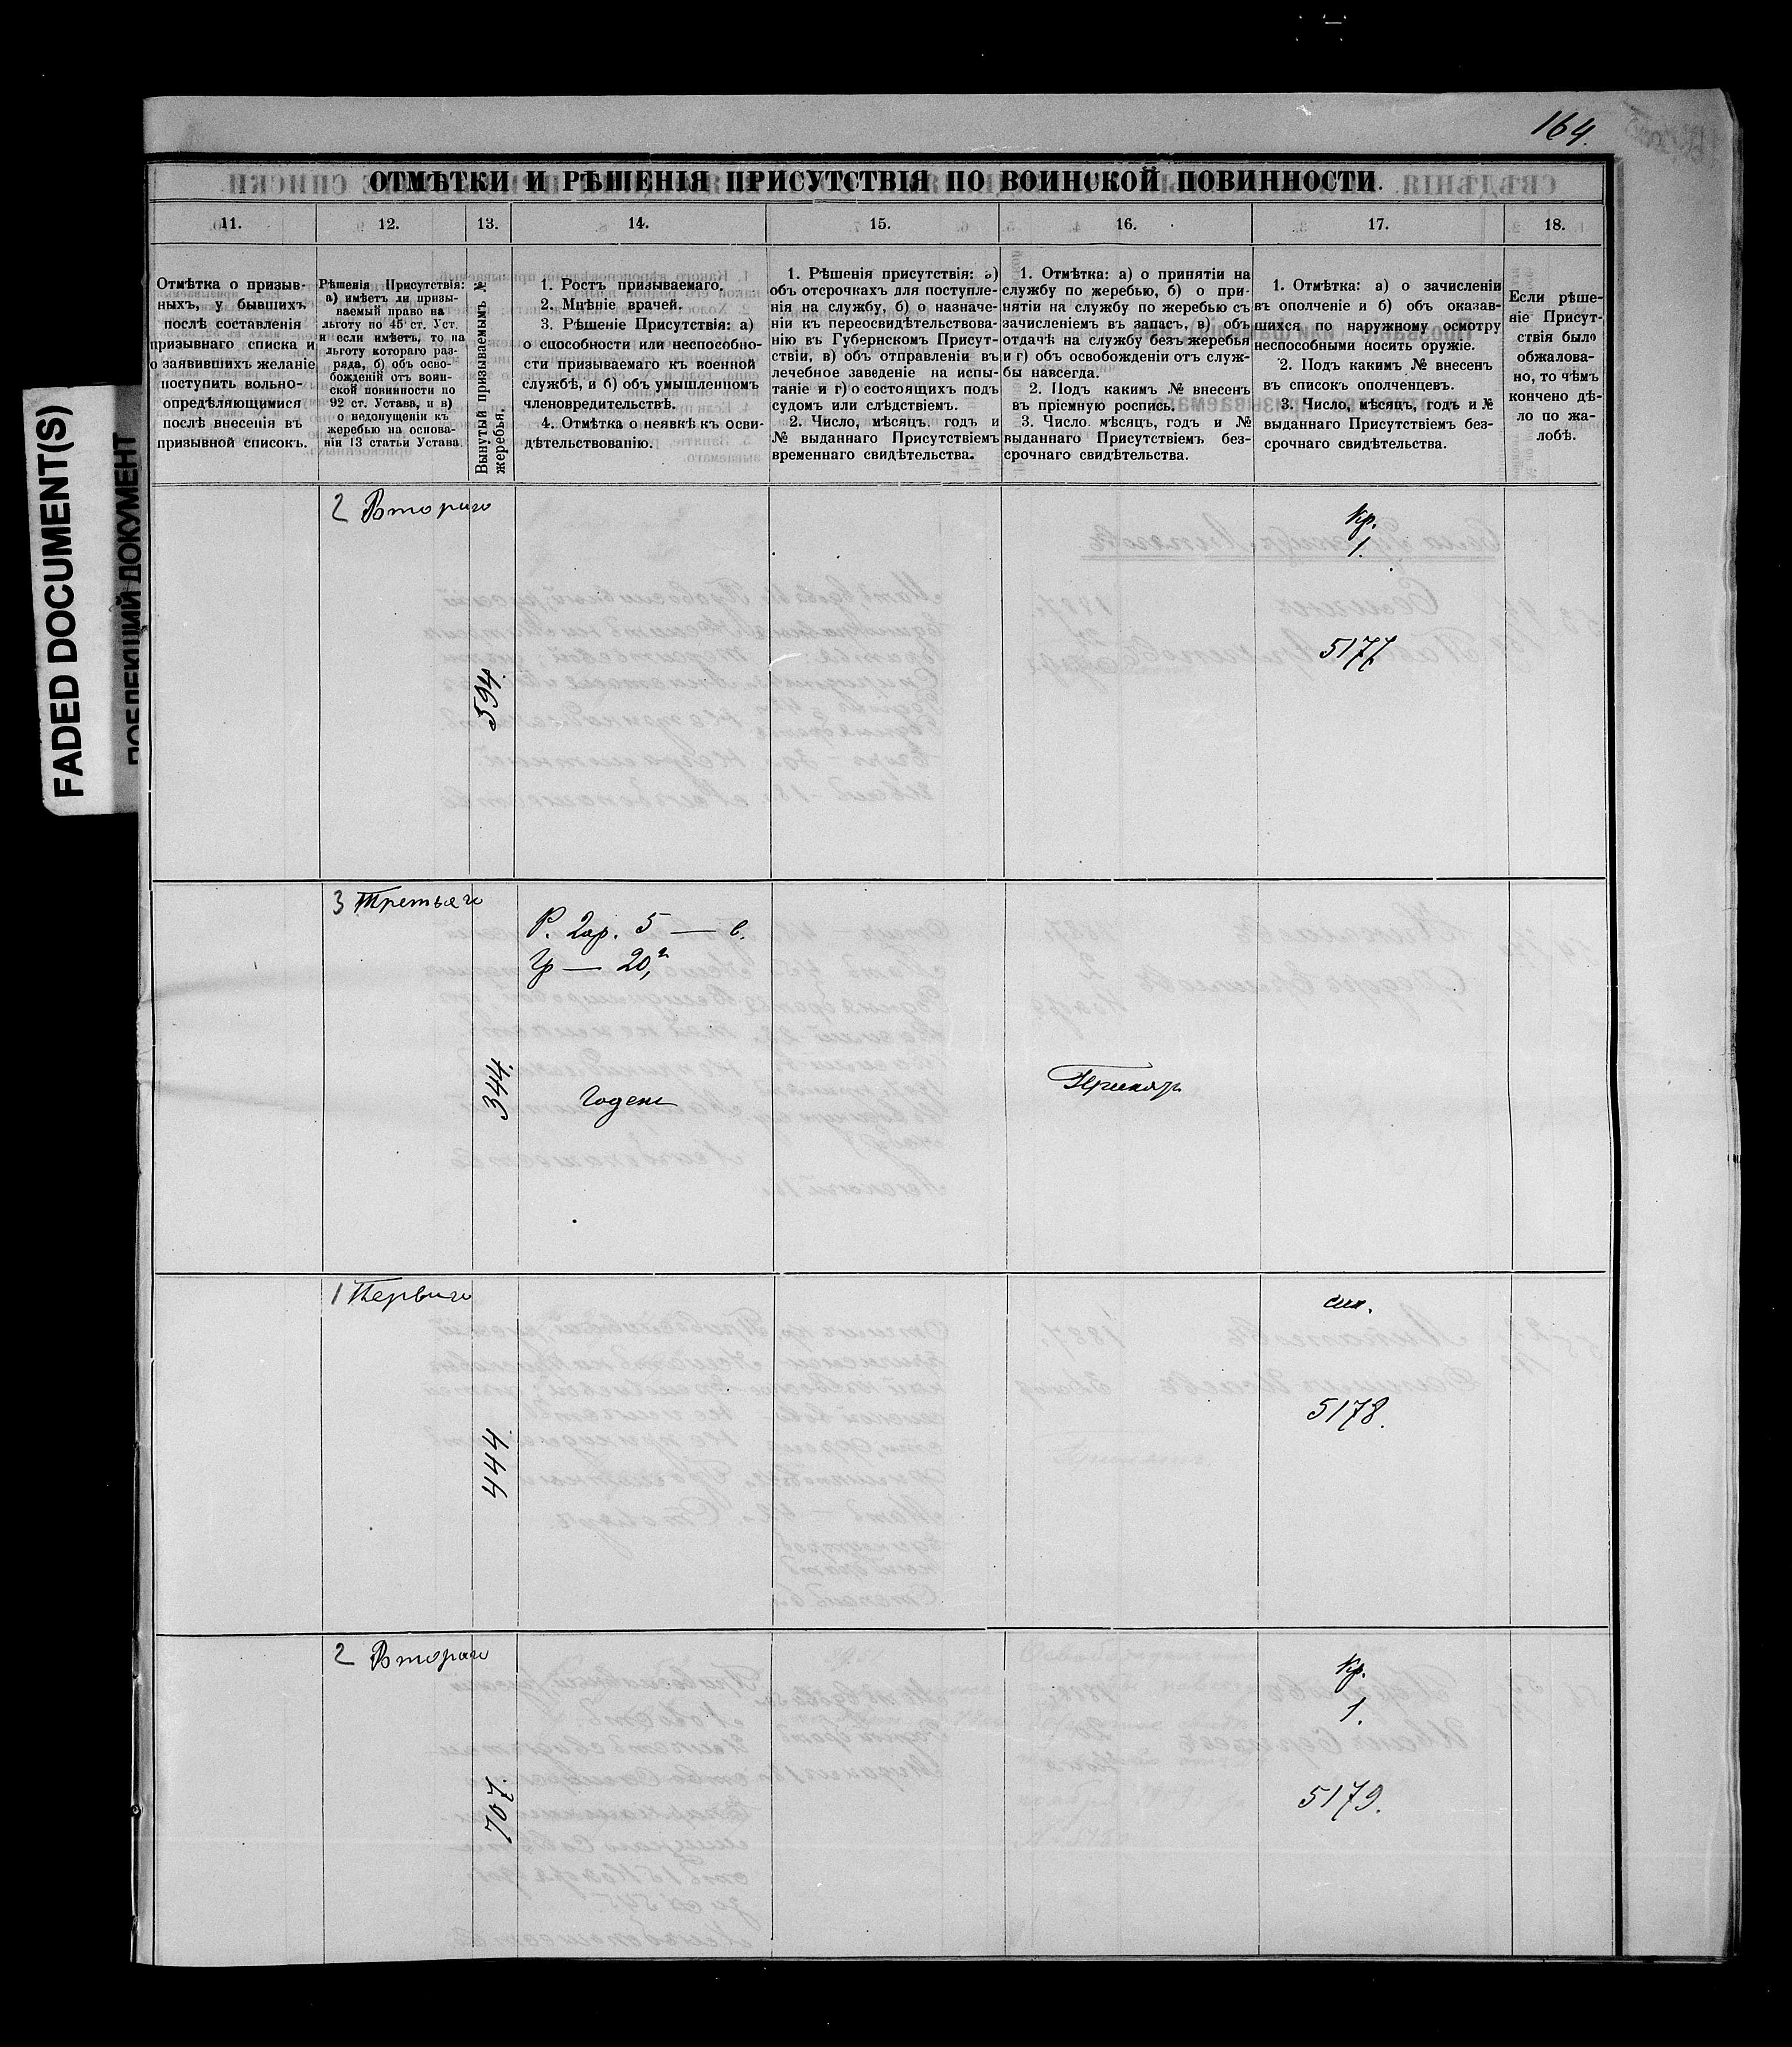 164.
ОТМѢТКИ И РѢШЕНІЯ ПРИСУТСТВІЯ ПО ВОИНСКОЙ ПОВИННОСТИ.
11.
12.
13.
14.
15.
16.
17.
18.
Отмѣтка о призыв-
ныхъ, у бывшихъ
послѣ составленія
призывнаго списка и
о заявившихъ желаніе
поступить вольно-
опредѣляющимися
послѣ внесенія въ
призывной списокъ.
Рѣшенія Присутствія:
а) имѣетъ ли призы-
ваемый право на
льготу по 45 ст. Уст.
и если имѣетъ, то на
льготу котораго раз-
ряда, б) объ осво-
божденіи отъ воин-
ской повинности по
92 ст. Устава, и в)
о недопущеніи къ
жеребью на основа-
ніи 13 статьи Устава
Вынутый призываемымъ №
жеребья.
1. Ростъ призываемаго.
2. Мнѣніе врачей.
3. Рѣшеніе Присутствія: а)
о способности или неспособно-
сти призываемаго къ военной
службѣ, и б) объ умышленномъ
членовредительствѣ.
4. Отмѣтка о неявкѣ къ осви-
дѣтельствованію.
1. Рѣшенія присутствія: а)
объ отсрочкахъ для поступле-
нія на службу, б) о назначе-
ніи къ переосвидѣтельствова-
нію въ Губернскомъ Присут-
ствіи, в) объ отправленіи въ
лечебное заведеніе на испы-
таніе и г) о состоящихъ подъ
судомъ или слѣдствіемъ.
2. Число, мѣсяцъ, годъ и
№ выданнаго Присутствіемъ
временнаго свидѣтельства.
1. Отмѣтка: а) о принятіи на
службу по жеребью, б) о при-
нятіи на службу по жеребью съ
зачисленіемъ въ запасъ, в) объ
отдачѣ на службу безъ жеребья
и г) объ освобожденіи отъ служ-
бы навсегда.
2. Подъ какимъ № внесенъ
въ пріемную роспись.
3. Число, мѣсяцъ, годъ и №
выданнаго Присутствіемъ без-
срочнаго свидѣтельства.
1. Отмѣтка: а) о зачисленіи
въ ополченіе и б) объ оказав-
шихся по наружному осмотру
неспособными носить оружіе.
2. Подъ какимъ № внесенъ
въ списокъ ополченцевъ.
3. Число, мѣсяцъ, годъ и №
выданнаго Присутствіемъ без-
срочнаго свидѣтельства.
Если рѣше-
ніе Присут-
ствія было
обжалова-
но, то чѣмъ
кончено дѣ-
ло по жа-
лобѣ.
2 Второго
594.
Кр.
1.
5177
3 Третьяго
344.
Р. 2ар. 5 — в.
Гр — 20,
Годенъ
Принятъ
1 Перваго
444.
5178.
2 Второго
707.
Кр.
1.
5179.
FADED DOCUMENT(S)